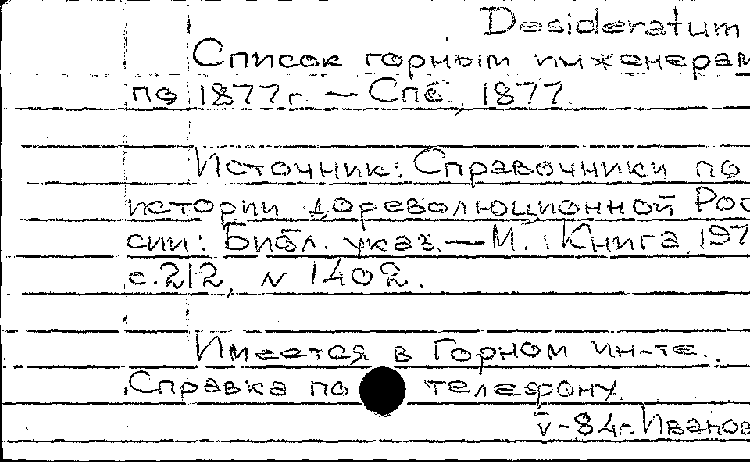 Desideratum
Список горным инженерам
по 1877г. — Спб., 1877.
Источник: Справочники по
истории дореволюционной Рос
сии: Библ. указ. — М.: Книга, 197
с.212, N 1402.
Имеется в Горном ин-те.
Справка по телефону.
V-84г. Иванов